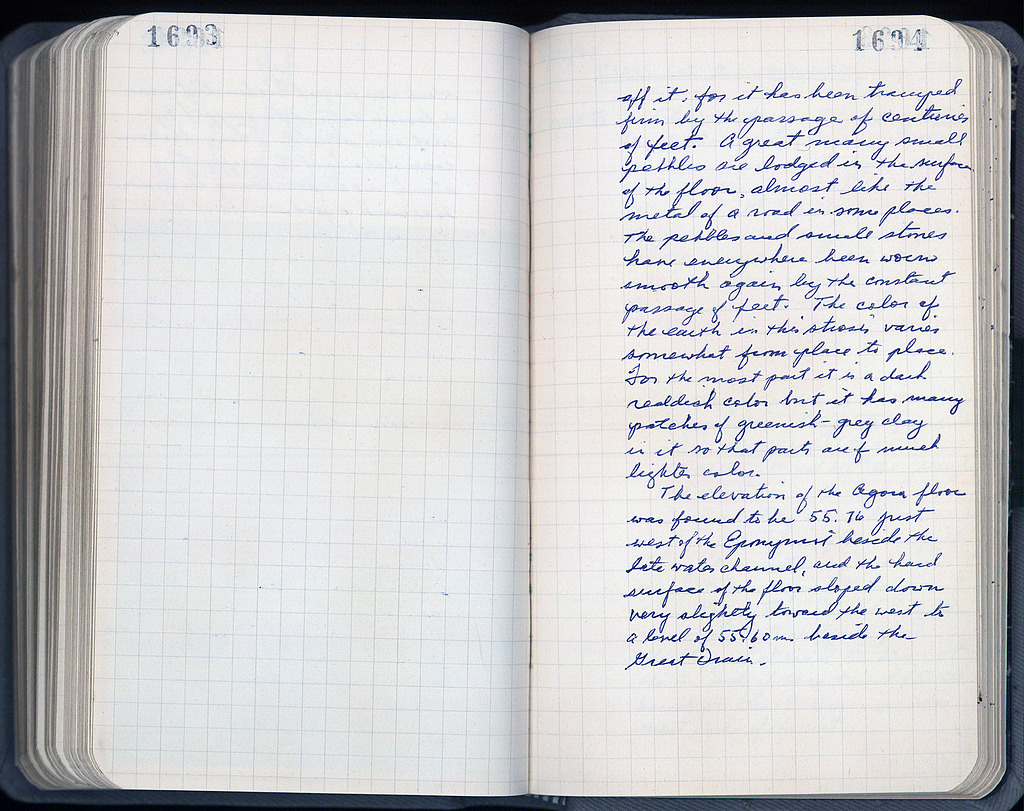 1693
1694
off it, for it has been tramped
firm by the passage of centuries
of feet. A great many small
pebbles are lodged in the surface
of the floor, almost like the
metal of a road in some places.
The pebbles and small stones
have everywhere been worn
smooth again by the constant
passage of feet. The color of
the earth in this strosis varies
somewhat from place to place.
For the most part it is a dark
reddish color but it has many
patches of greenish-grey clay
in it so that parts are of much
lighter color.
The elevation of the Agora floor
was found to be 55.76 just
west of the Eponymoi beside the
late water channel, and the hard
surface of the floor sloped down
very slightly toward the west to
a level of 55.60 m. beside the
Great Drain.